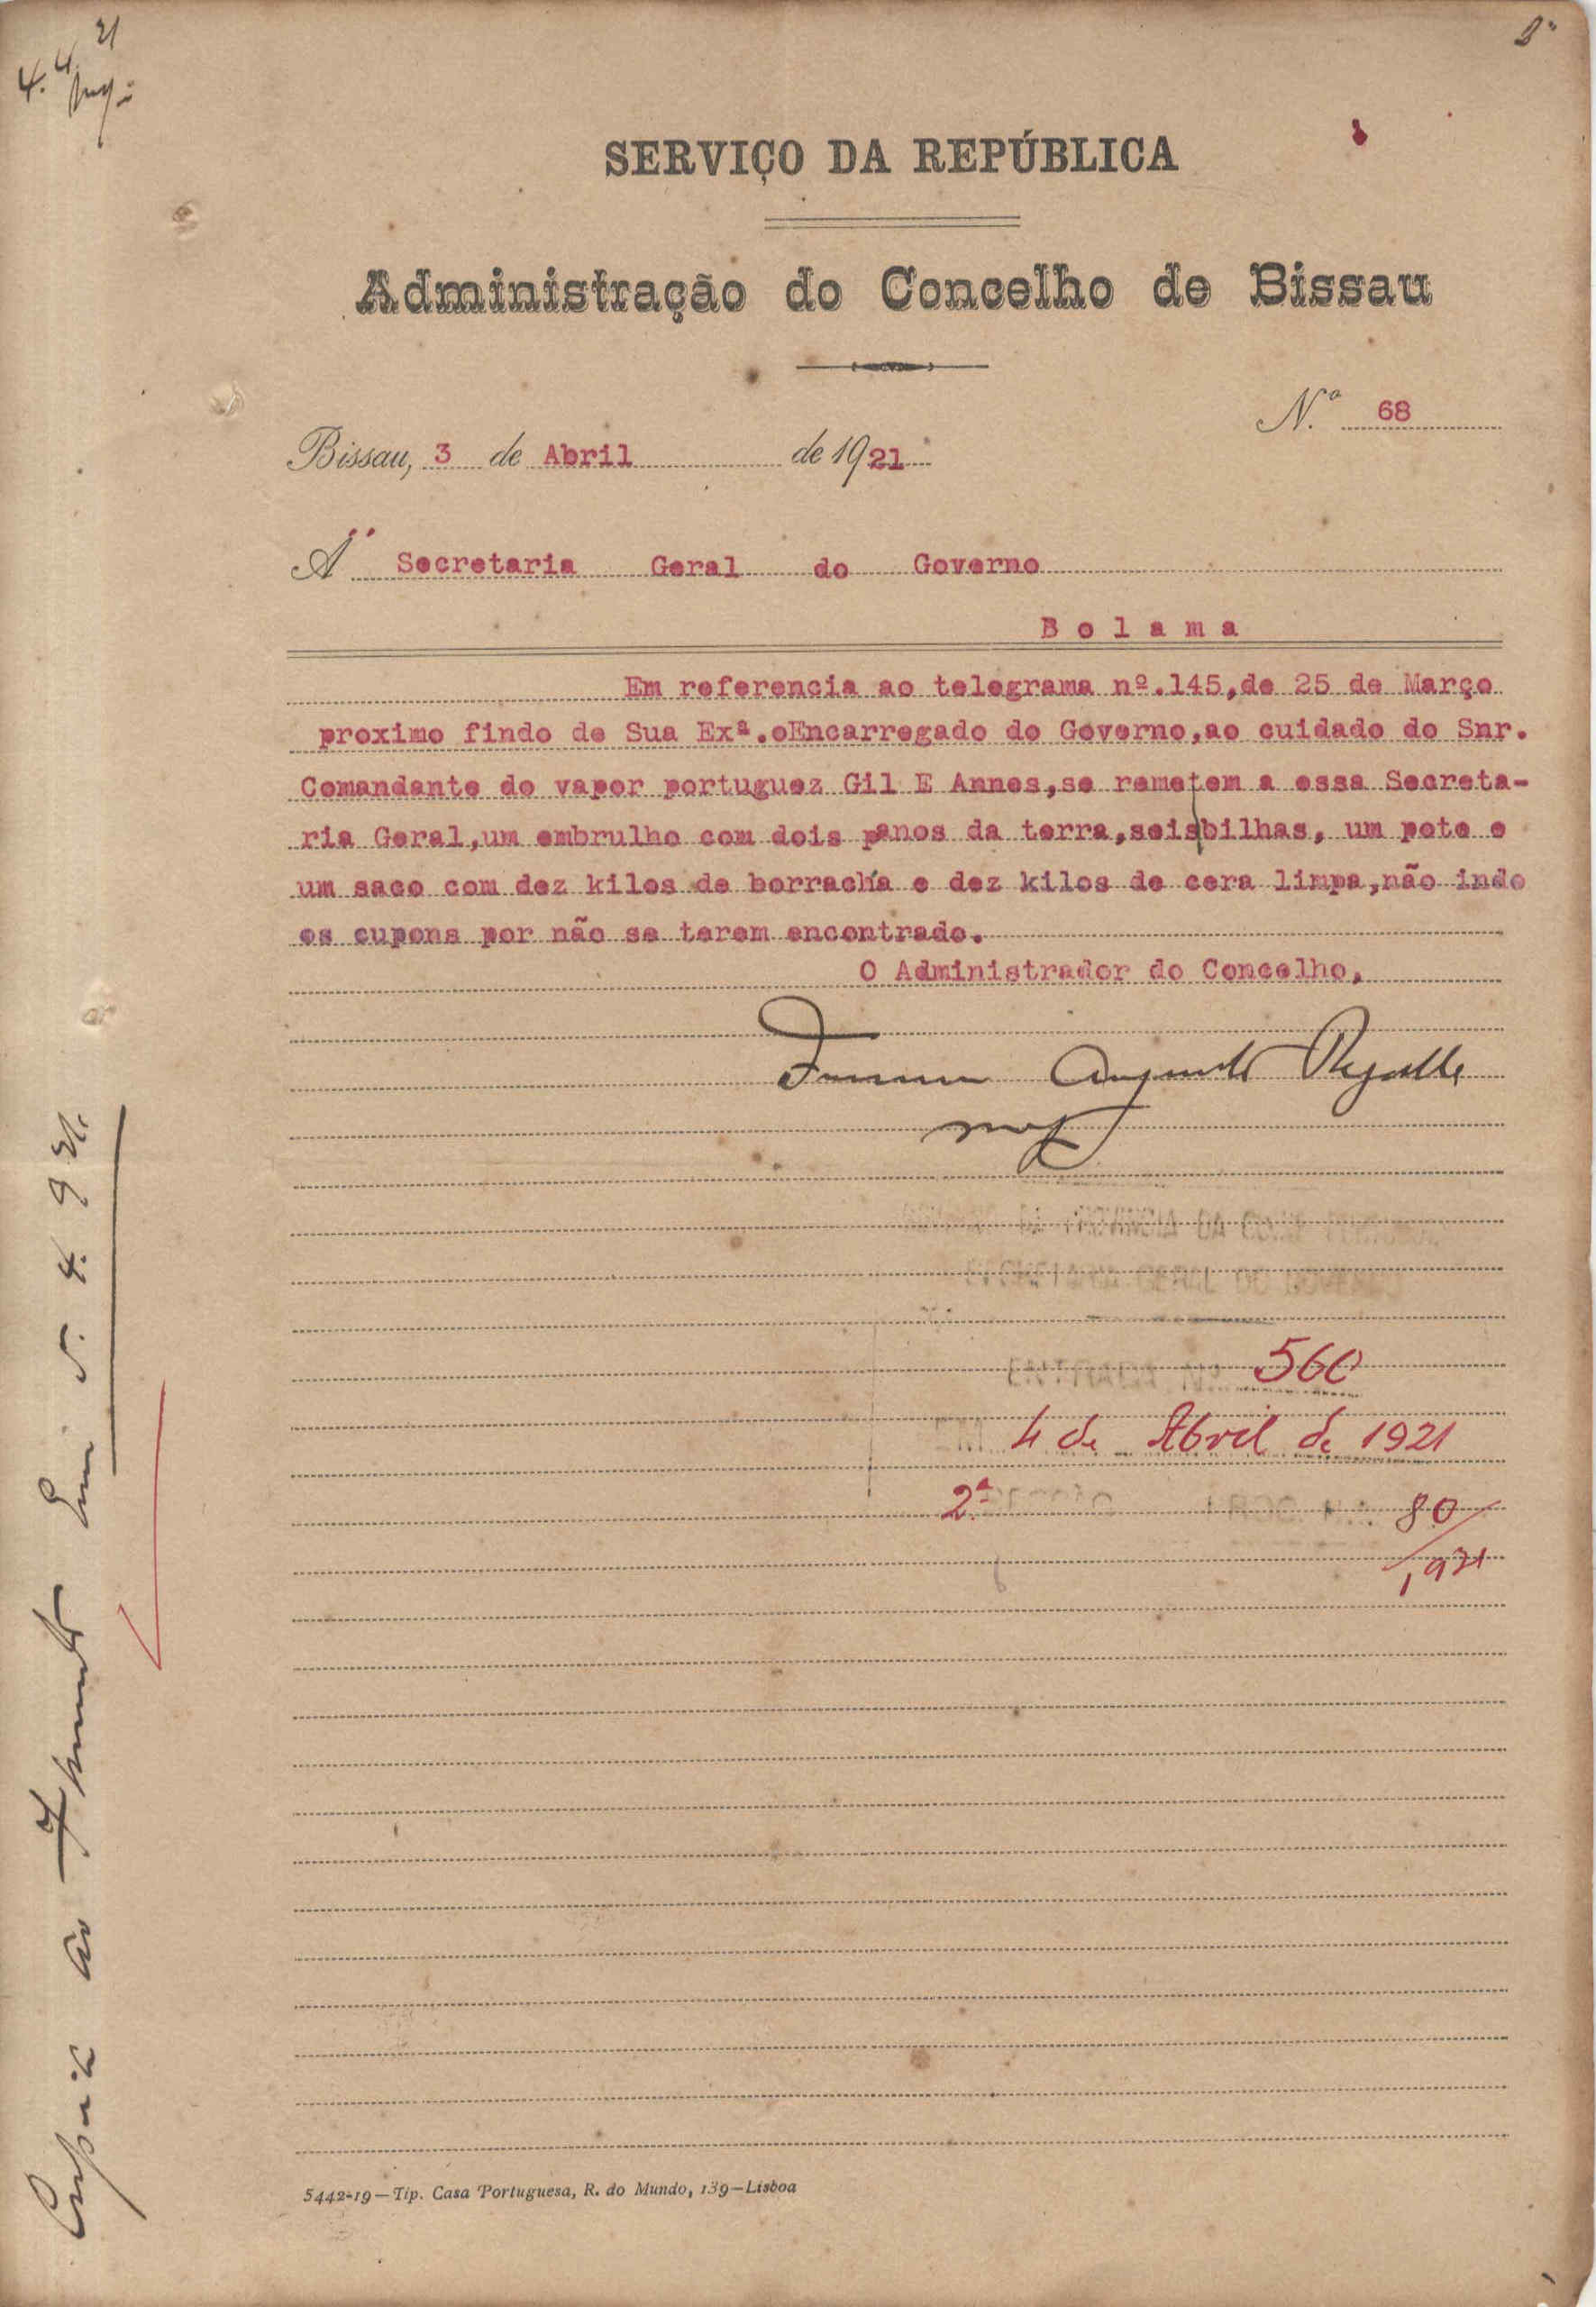 4. 4. 21
SERVIÇO DA REPÚBLICA
Administração do Concelho de Bissau
N.º 68
Bissau, 3 de Abril de 1921
Á Secretaria Geral do Governo
Bolama
Em referencia ao telegrama nº.145,de 25 de Março
proximo findo de Sua Exª.oEncarregado do Governo,ao cuidado do Snr.
Comandante do vapor portuguez Gil E Annes,se remetem a essa Secreta-
ria Geral,um embrulho com dois panos da terra,seisbilhas, um pote e
um saco com dez kilos de borracha e dez kilos de cera limpa,não indo
os cupons por não se terem encontrado.
O Administrador do Concelho,
Augusto Regalla
ENTRADA Nº 560
EM 4 de Abril de 1921
2.ª 80
1921
5442-19—Tip. Casa Portuguesa, R. do Mundo, 139—Lisboa